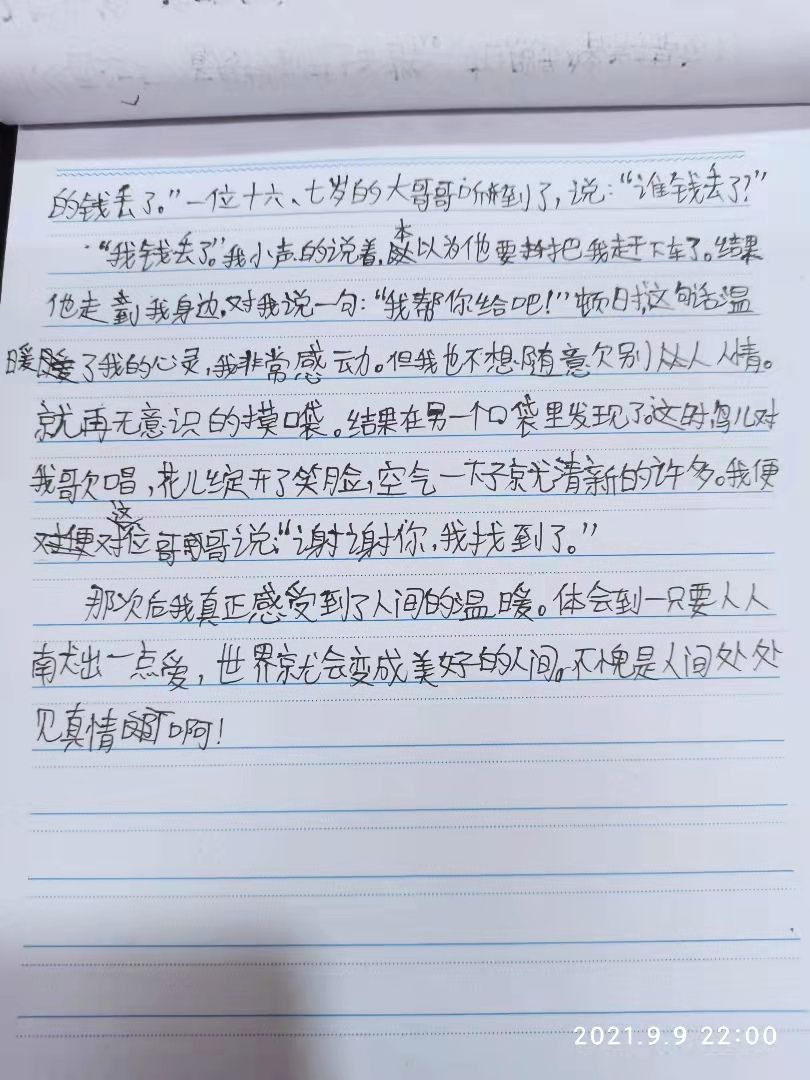 的钱丢了。”一位十六、七岁的大哥哥听到了，说：“谁钱丢了？”
“我钱丢了。”我小声的说着，本以为他要把我赶下车了。结果
他走到我身边，对我说一句：“我帮你给吧！”顿时，这句话温
暖了我的心灵，我非常感动。但我也不想随意欠别人人情。
就再无意识的摸口袋。结果在另一个口袋里发现了。这时鸟儿对
我歌唱，花儿绽开了笑脸，空气一下子就清新的许多。我便
对这位哥哥说：“谢谢你，我找到了。”
那次后我真正感受到了人间的温暖。体会到一只要人人
献出一点爱，世界就会变成美好的人间。不愧是人间处处
见真情啊！
2021.9.9 22:00